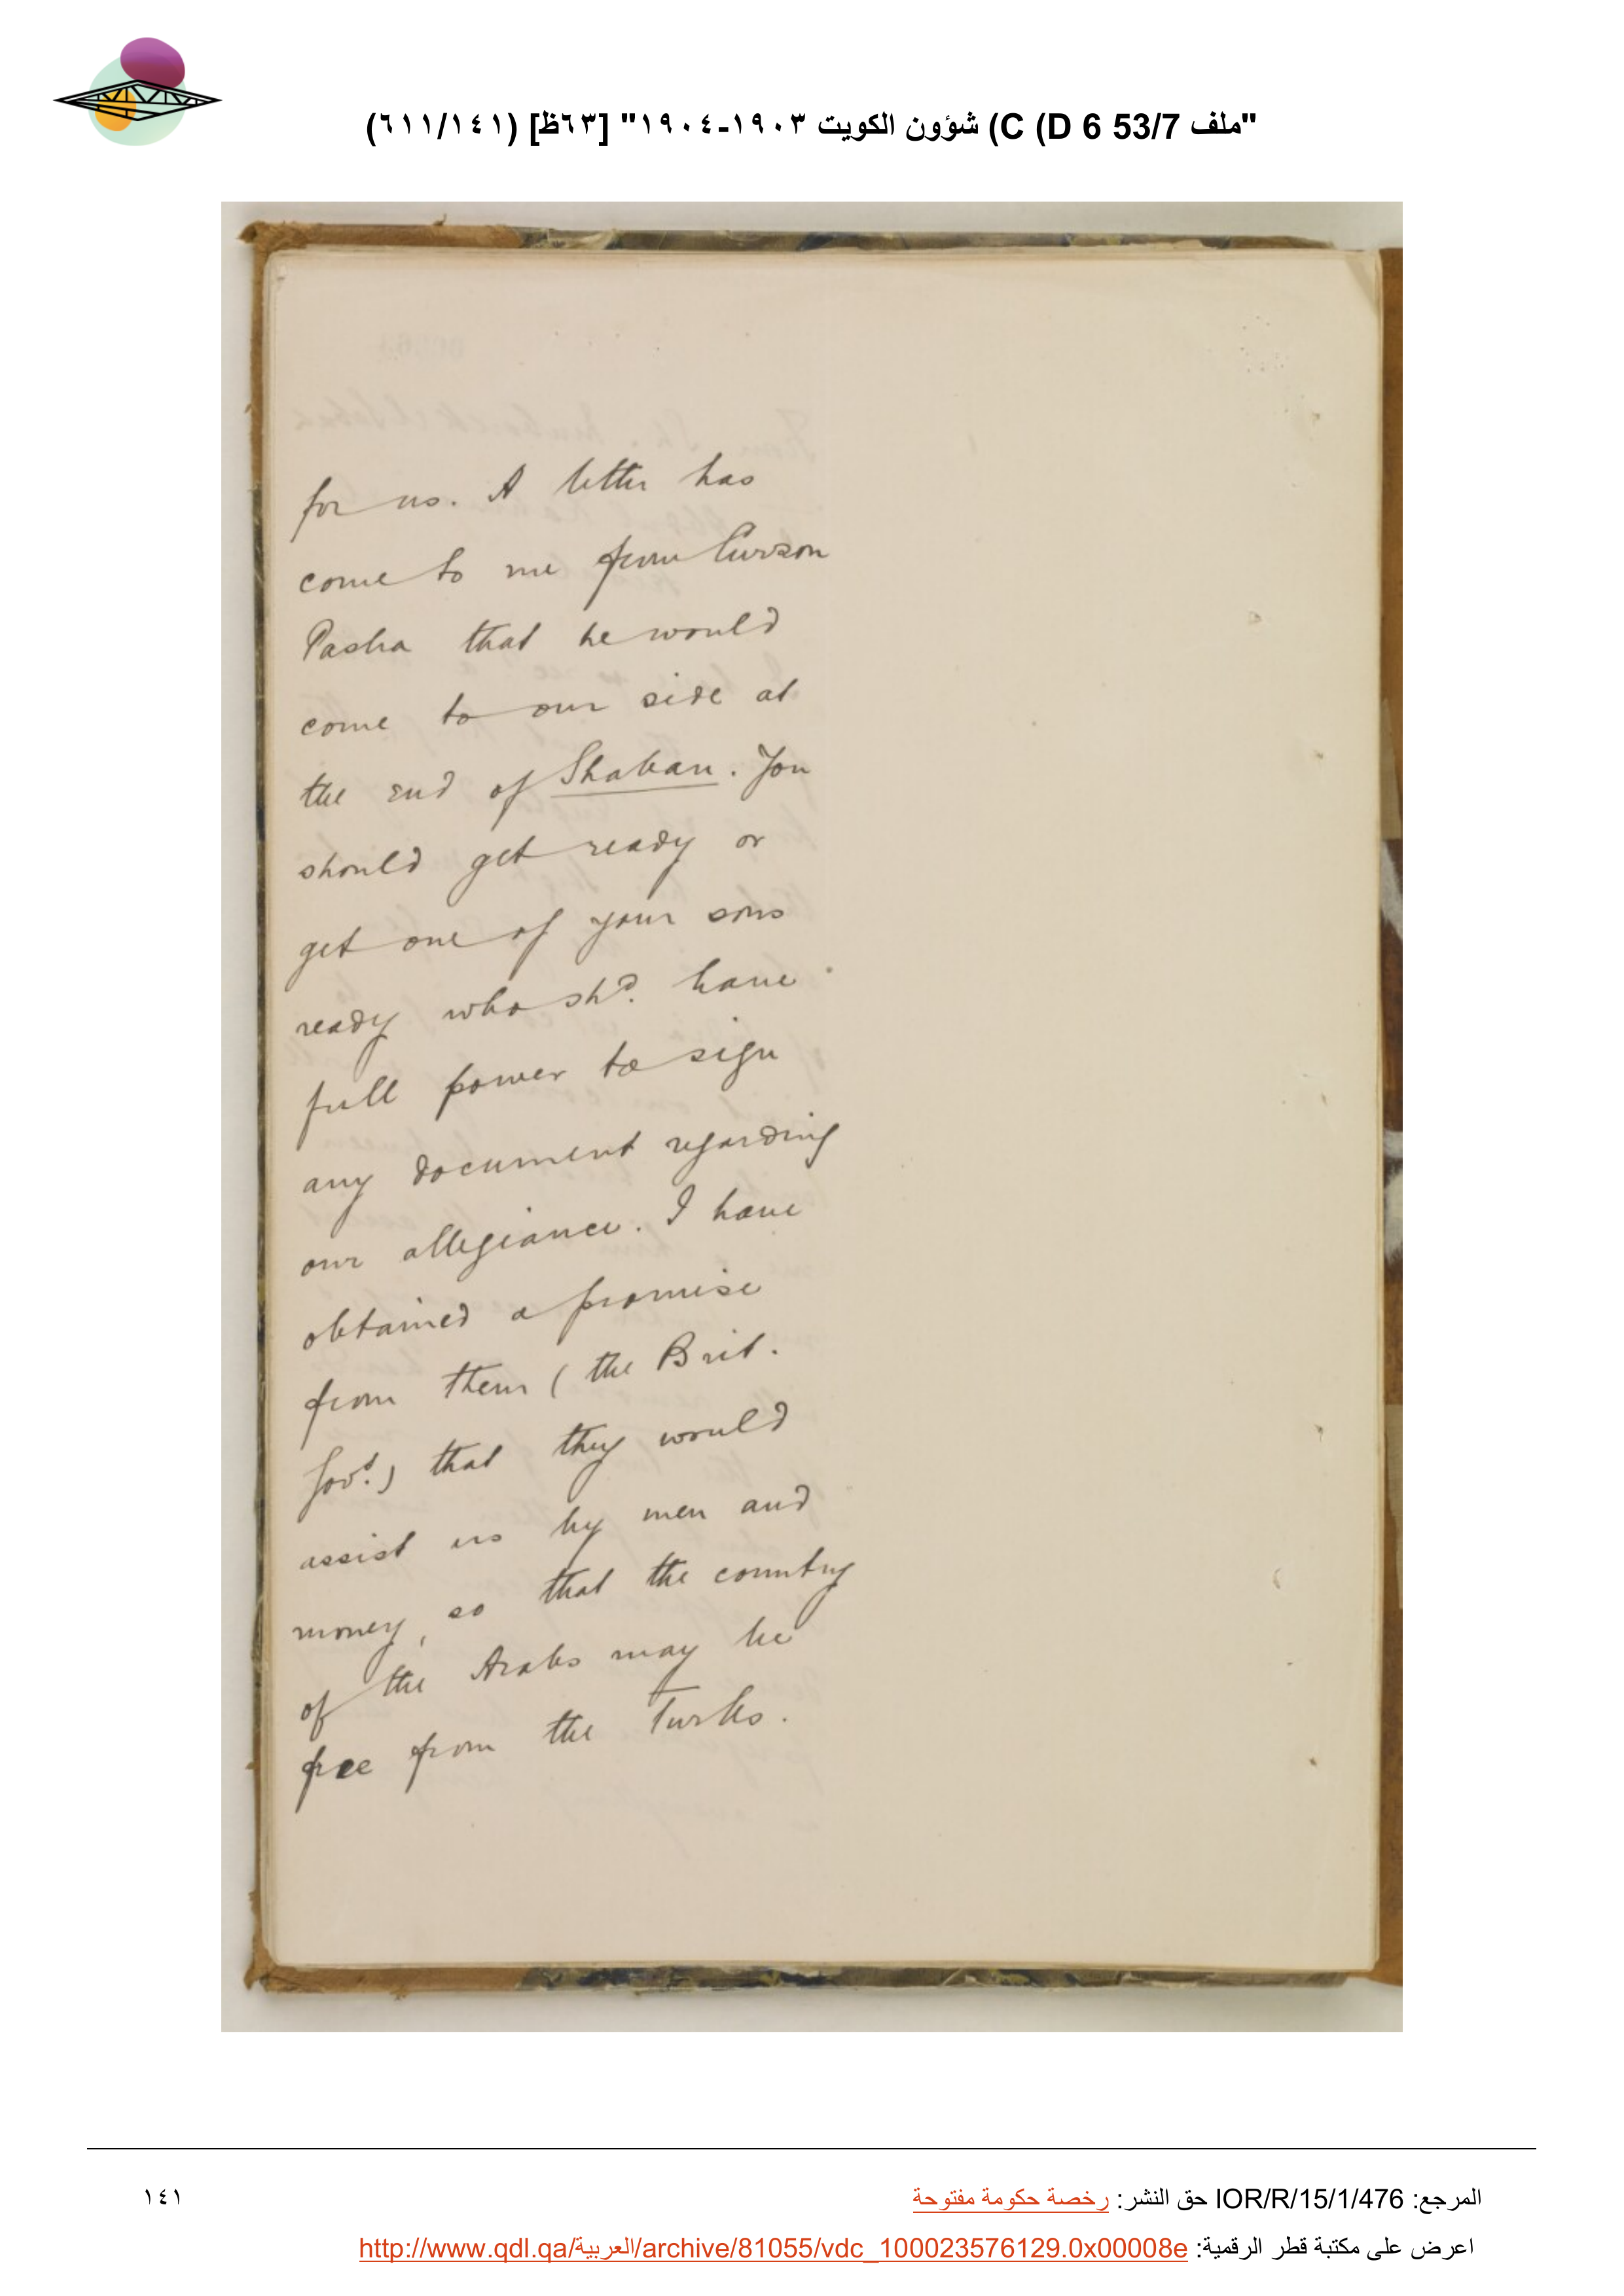 "ملف 53/7 D 6) C) شؤون الكويت ١٩٠٣-١٩٠٤" [٦٣ظ] (٦١١/١٤١)
for us. A letter has
come to me from Curzon
Pasha that he would
come to our side at
the end of Shaban. You
should get ready or
get one of your sons
ready who shd. have
full power to sign
any document regarding
our allegiance. I have
obtained a promise
from them (the Brit.
Govt.) that they would
assist us by men and
money, so that the country
of the Arabs may be
free from the Turks.
المرجع: IOR/R/15/1/476 حق النشر: رخصة حكومة مفتوحة
١٤١
اعرض على مكتبة قطر الرقمية: http://www.qdl.qa/العربية/archive/81055/vdc_100023576129.0x00008e